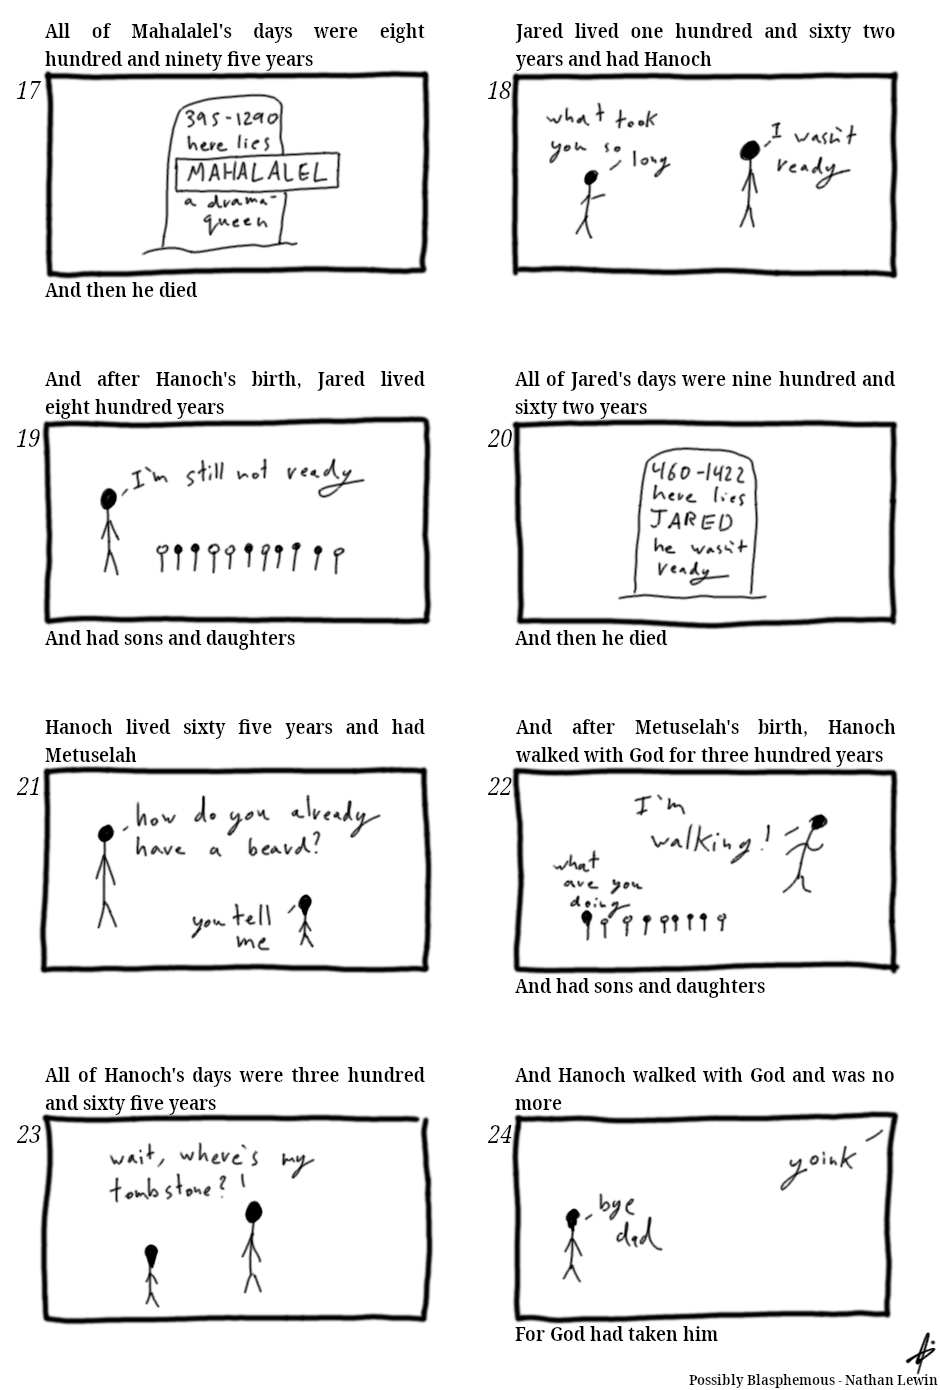 All of Mahalalel's days were eight
hundred and ninety five years
17
395-1290
here lies
MAHALALEL
a drama-
queen
And then he died
Jared lived one hundred and sixty two
years and had Hanoch
18
what took
you so
long
I wasn't
ready
And after Hanoch's birth, Jared lived
eight hundred years
19
I'm still not ready
And had sons and daughters
All of Jared's days were nine hundred and
sixty two years
20
460-1422
here lies
JARED
he wasn't
ready
And then he died
Hanoch lived sixty five years and had
Metuselah
21
how do you already
have a beard?
you tell
me
And after Metuselah's birth, Hanoch
walked with God for three hundred years
22
I'm
walking!
what
are you
doing
And had sons and daughters
All of Hanoch's days were three hundred
and sixty five years
23
wait, where's my
tombstone?
And Hanoch walked with God and was no
more
24
yoink
bye
dad
For God had taken him
Possibly Blasphemous - Nathan Lewin